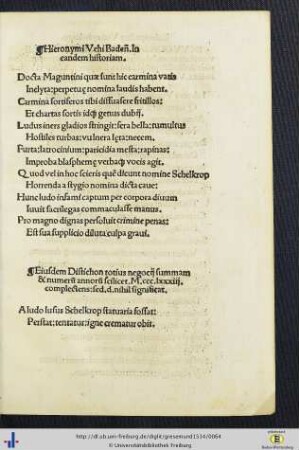 ¶Hieronymi Vehi Badeñ. In
eandem historiam.
Docta Maguntini quæ sunt hic carmina vatis
Inclyta: perpetuę nomina laudis habent.
Carmina sortiferos tibi dissuasere fritillos:
Et chartas sortis idq; genus dubij.
Ludus iners gladios stringit: fera bella: tumultus
Hostiles turbas: vulnera lęta: necem.
Furta: latrocinium: paricidia mesta: rapinas:
Improba blasphemę verbaq; vocis agit.
Quod vel in hoc sceleris quē dicunt nomine Schelkrop
Horrenda a stygio nomina dicta caue:
Hunc ludo infami captum per corpora diuum
Iuuit sacrilegas commaculasse manus.
Pro magno dignas persoluit crimine penas:
Est sua supplicio diluta culpa graui.
¶Eiusdem Distichon totius negocij summam
& numerū annorū scilicet. M. cccc. lxxxiiij.
complectens: sed. d. nihil significat.
A ludo lusus Schelkrop statuaria fossat:
Perstat: tentatur: igne crematur obit.
http://dl.ub.uni-freiburg.de/diglit/gresemund1534/0064
© Universitätsbibliothek Freiburg